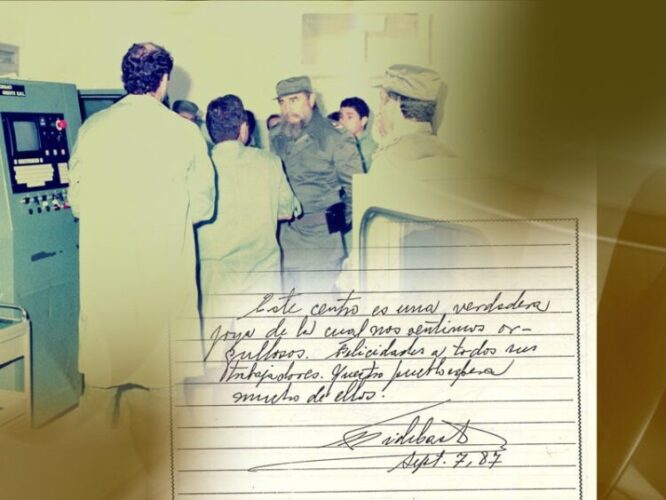 Este centro es una verdadera
joya de la cual nos sentimos or-
gullosos. Felicidades a todos sus
trabajadores. Nuestro pueblo espera
mucho de ellos.
Sept. 7, 87